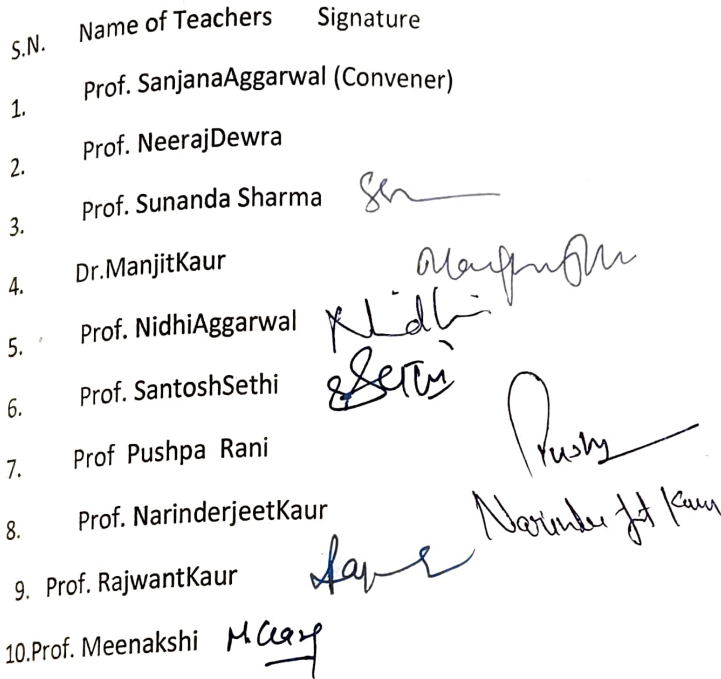 S.N. Name of Teachers Signature
1. Prof. SanjanaAggarwal (Convener)
2. Prof. NeerajDewra
3. Prof. Sunanda Sharma
4. Dr.ManjitKaur
5. Prof. NidhiAggarwal Nidhi
6. Prof. SantoshSethi SSethi
7. Prof Pushpa Rani
8. Prof. NarinderjeetKaur Narinder Jit Kaur
9. Prof. RajwantKaur
10.Prof. Meenakshi M.Garg